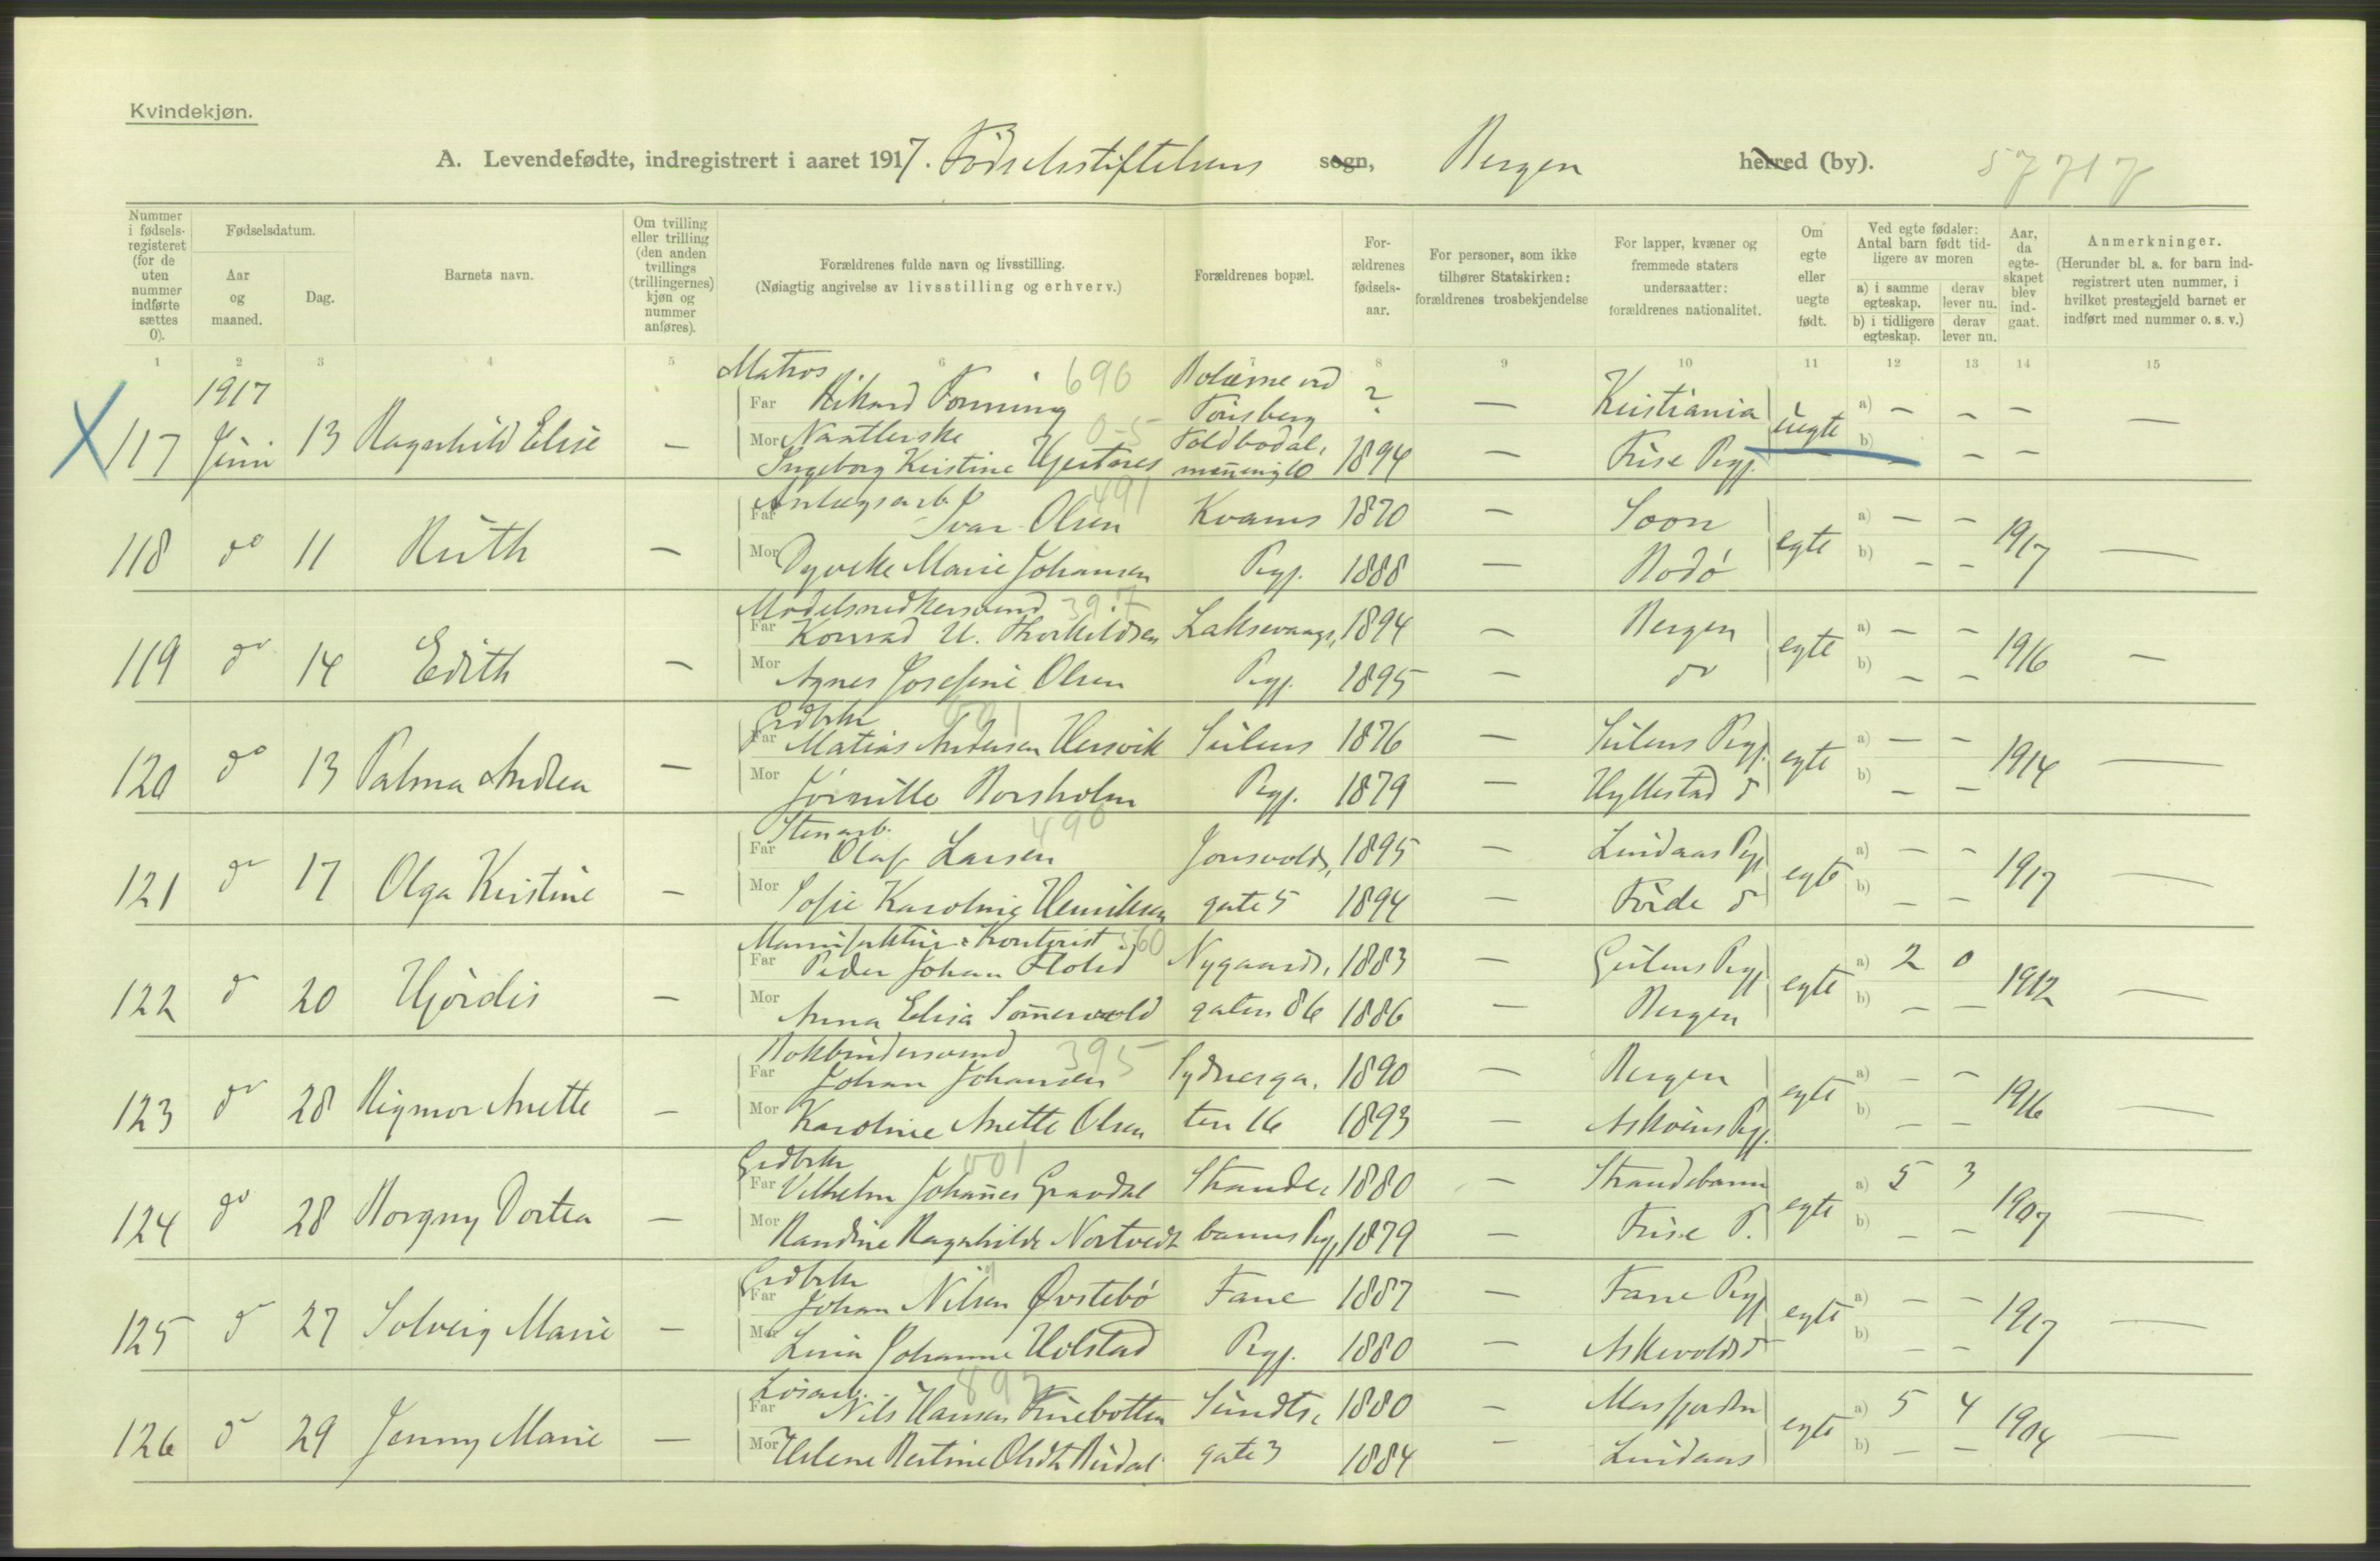 Kvindekjøn.
A. Levendefødte, indregistrert i aaret 1917. Fødselsstiftelsens sogn, Bergen herred (by). 57717
Nummer i fødselsregisteret (for de uten nummer indførte sættes 0).
Fødselsdatum.
Aar og maaned.
Dag.
Barnets navn.
Om tvilling eller trilling (den anden tvillings (trillingernes) kjøn og nummer anføres).
Forældrenes fulde navn og livsstilling.
(Nøiagtig angivelse av livsstilling og erhverv.)
Forældrenes bopæl.
Forældrenes fødselsaar.
For personer, som ikke tilhører Statskirken: forældrenes trosbekjendelse
For lapper, kvæner og fremmede staters undersaatter: forældrenes nationalitet.
Om egte eller uegte født.
Ved egte fødsler: Antal barn født tidligere av moren
a) i samme egteskap.
derav lever nu.
b) i tidligere egteskap.
derav lever nu.
Aar, da egteskapet blev indgaat.
Anmerkninger.
(Herunder bl. a. for barn indregistrert uten nummer, i hvilket prestegjeld barnet er indført med nummer o. s. v.)
1 2 3 4 5 6 7 8 9 10 11 12 13 14 15
1917
Matros 690
Far Rikard Tønning Bolærne ved Tønsberg ? — Kristiania a) — — —
X 117 Juni 13 Ragnhild Elise — uegte —
Mor Naatlerske 0-5 Toldbodal.
Ingeborg Kristine 1894 — Fuse Pgj. b) — — —
Anlægsarb. 491
Far Ivar Olsen Kvams 1870 — Soon a) — —
118 do 11 Ruth — egte 1917 —
Mor Dyveke Marie Johansen Pgj. 1888 — Rodø b) — —
Modelsnedkersvend 397
Far Konrad U. Thorkildsen Laksevaags 1894 — Bergen a) — —
119 do 14 Edith — egte 1916 —
Mor Agnes Josefine Olsen Pgj. 1895 — do b) — —
Grdbrk 001
Far Matias Andersen Hersvik Sulens 1876 — Sulens Pgj. a) — —
120 do 13 Palma Andrea — egte 1914 —
Mor Jørnille Borsholm Pgj. 1879 — Hyllestad d b) — —
Stenarb. 490
Far Olaf Larsen Jonsvolds 1895 — Lindaas Pgj a) — —
121 do 17 Olga Kristine — egte 1917 —
Mor Sofie Karoline Henriksen gate 5 1894 — Førde d b) — —
Manufaktur-Kontorist 360
Far Peder Johan Nygaards 1883 — Gulens Pgj a) 2 0
122 d 20 Hjørdis — egte 1912 —
Mor Anna Elisa gaten 86 1886 — Bergen b) — —
Bokbindersvend 395
Far Johan Johansen Sydnesga. 1890 — Bergen a) — —
123 do 28 Rigmor Anette — egte 1916 —
Mor Karoline Anette Olsen ten 16 1893 — Askøens Pgj. b) — —
Grdbrk 001
Far Vilhelm Johannes Gravdal Strande 1880 — Strandebarm a) 5 3
124 do 28 Borgny Dortea — egte 1907 —
Mor Randine Ragnhilde Nortvedt barms Pgj 1879 — Fuse P. b) — —
Grdbrk
Far Johan Nilsen Øvstebø Fane 1887 — Fane Pgj a) — —
125 d 27 Solveig Marie — egte 1917 —
Mor Lina Johanne Holstad Pgj. 1880 — Askevolds d b) — —
Løsarb. 897
Far Nils Hansen Furebotten Sundts 1880 — Masfjorden a) 5 4
126 d 29 Jenny Marie — egte 1904 —
Mor Helene Bertine gate 3 1884 — Lindaas b) — —